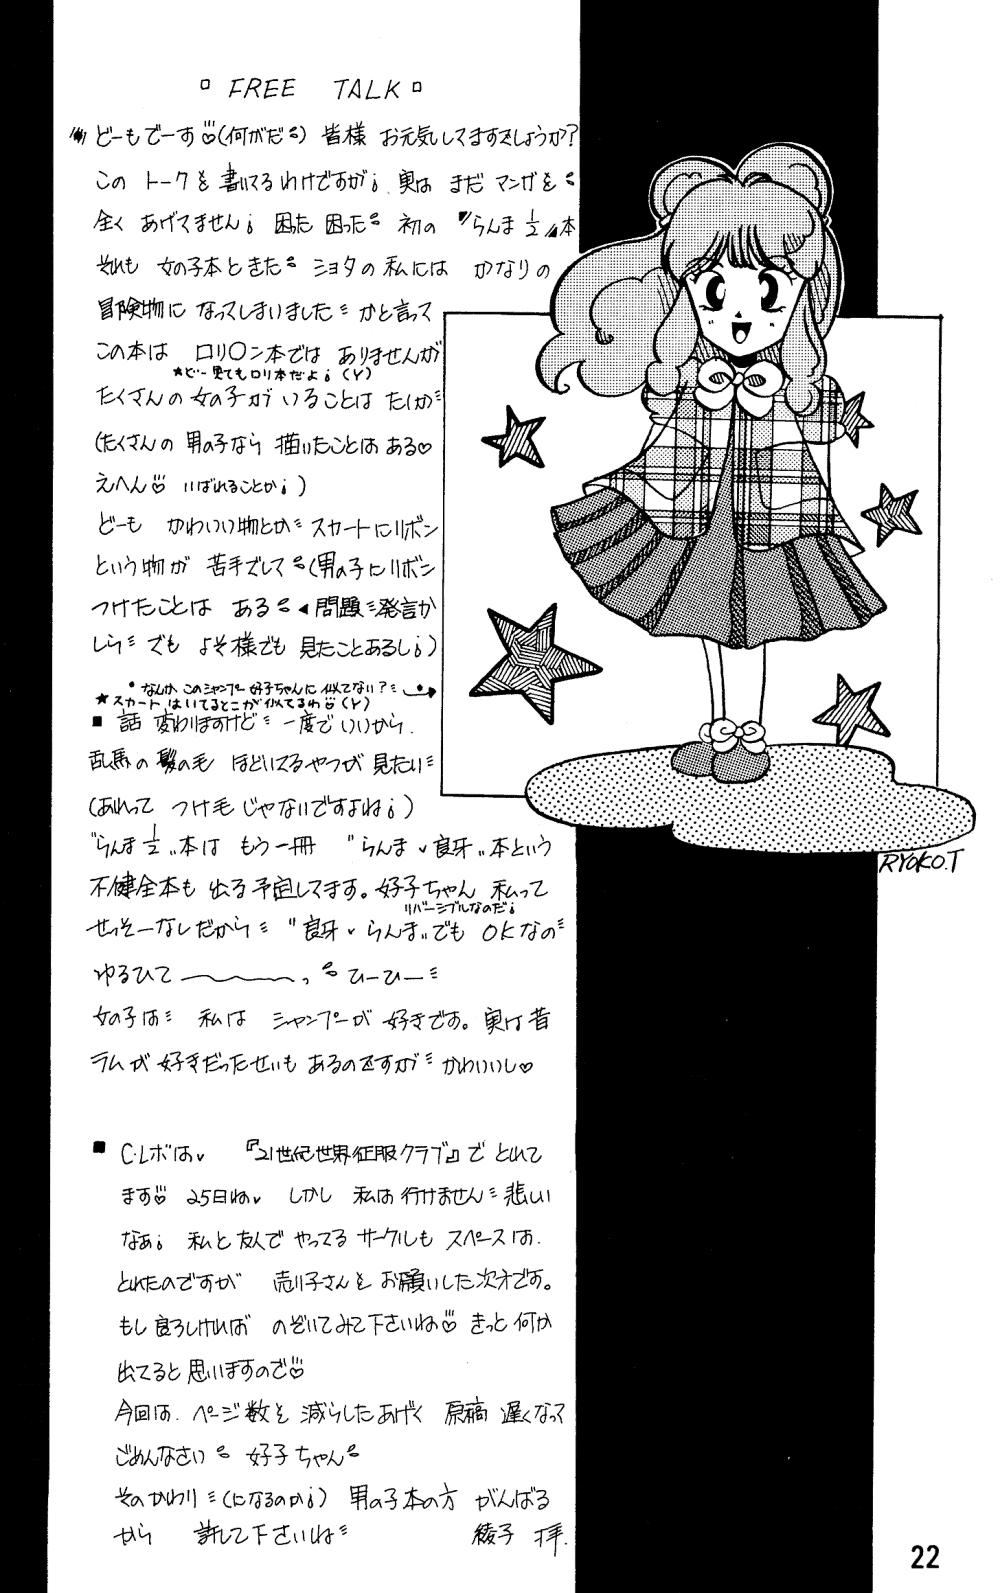 FREE TALK
どーもでーす♡(何がだ) 皆様 お元気してますでしょうか?
この トークを 書いてるわけですが、実は まだ マンガを
全く あげてません! 困った 困った 初の "らんま1/2"本
それも 女の子本ときた ショタの私には かなりの
冒険物に なってしまいました かと言って
この本は ロリ〇ン本では ありませんが
★どー見てもロリ本だよ!(Y)
たくさんの 女の子が いることは たしか
(たくさんの 男の子なら 描いたことはある♡
えへん♡ いばれることか!)
どーも かわいい物とか スカートにリボン
という物が 苦手でして(男の子にリボン
つけたことは ある ◀問題発言か
しら でも よそ様でも 見たことあるし!)
・なんか このシャンプー 好子ちゃんに 似てない?
★スカート はいてるとこが似てるわ♡(Y)
■ 話 変わりますけど 一度でいいから
乱馬の 髪の毛 ほどいてるやつが 見たい
(あれって つけ毛じゃないですよね!)
"らんま1/2"本は もう一冊 "らんま♥良牙"本という
不健全本も 出る予定してます。好子ちゃん 私って
リバーシブルなのだ!
せっそーなしだから "良牙♥らんま"でも OKなの
ゆるひて〜〜〜っ ひーひー
女の子は 私は シャンプーが 好きです。実は昔
ラムが 好きだったせいも あるのですが かわいいし♡
■ C・レボは♥ 『21世紀世界征服クラブ』で とれて
ます♡ 25日ね♥ しかし 私は 行けません 悲しい
なぁ! 私と友人で やってる サークルも スペースは
とれたのですが 売り子さんを お願いした次第です。
もし良ろしければ のぞいてみて下さいね♡ きっと 何か
出てると思いますので♡
今回は ページ数を 減らしたあげく 原稿 遅くなって
ごめんなさい 好子ちゃん
そのかわり(になるのか!) 男の子本の方 がんばる
から 許して下さいね 綾子 拝.
RYOKO.T
22